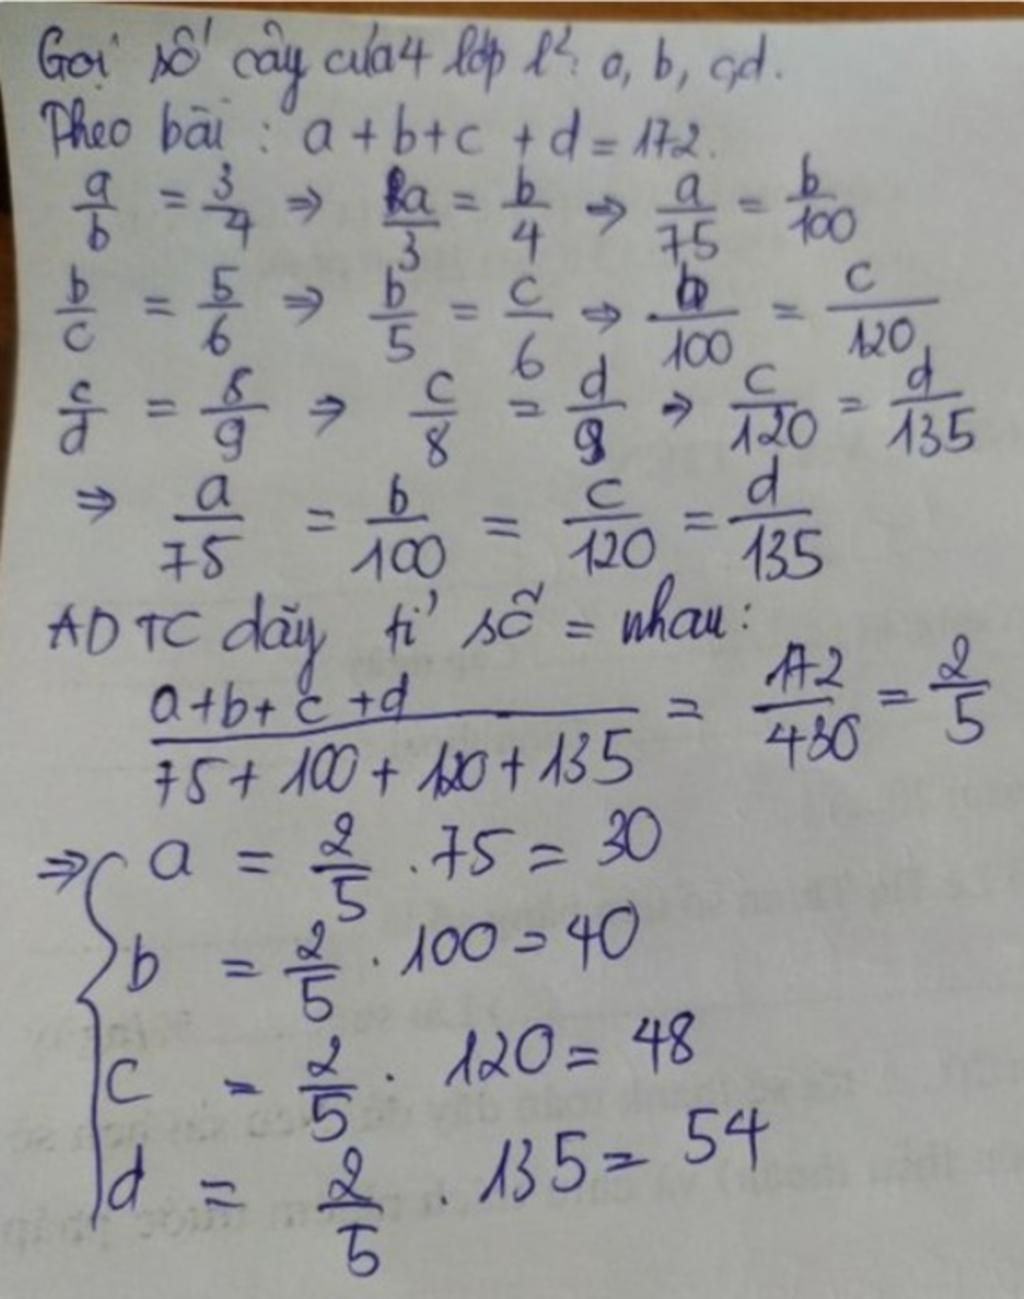 Gọi số cây của 4 lớp là: a, b, c, d.
Theo bài : a + b + c + d = 172.
a/b = 3/4 ⇒ a/3 = b/4 ⇒ a/75 = b/100
b/c = 5/6 ⇒ b/5 = c/6 ⇒ b/100 = c/120
c/d = 8/9 ⇒ c/8 = d/9 ⇒ c/120 = d/135
⇒ a/75 = b/100 = c/120 = d/135
ADTC dãy tỉ số = nhau:
(a+b+c+d)/(75+100+120+135) = 172/430 = 2/5
⇒ { a = 2/5 . 75 = 30
b = 2/5 . 100 = 40
c = 2/5 . 120 = 48
d = 2/5 . 135 = 54